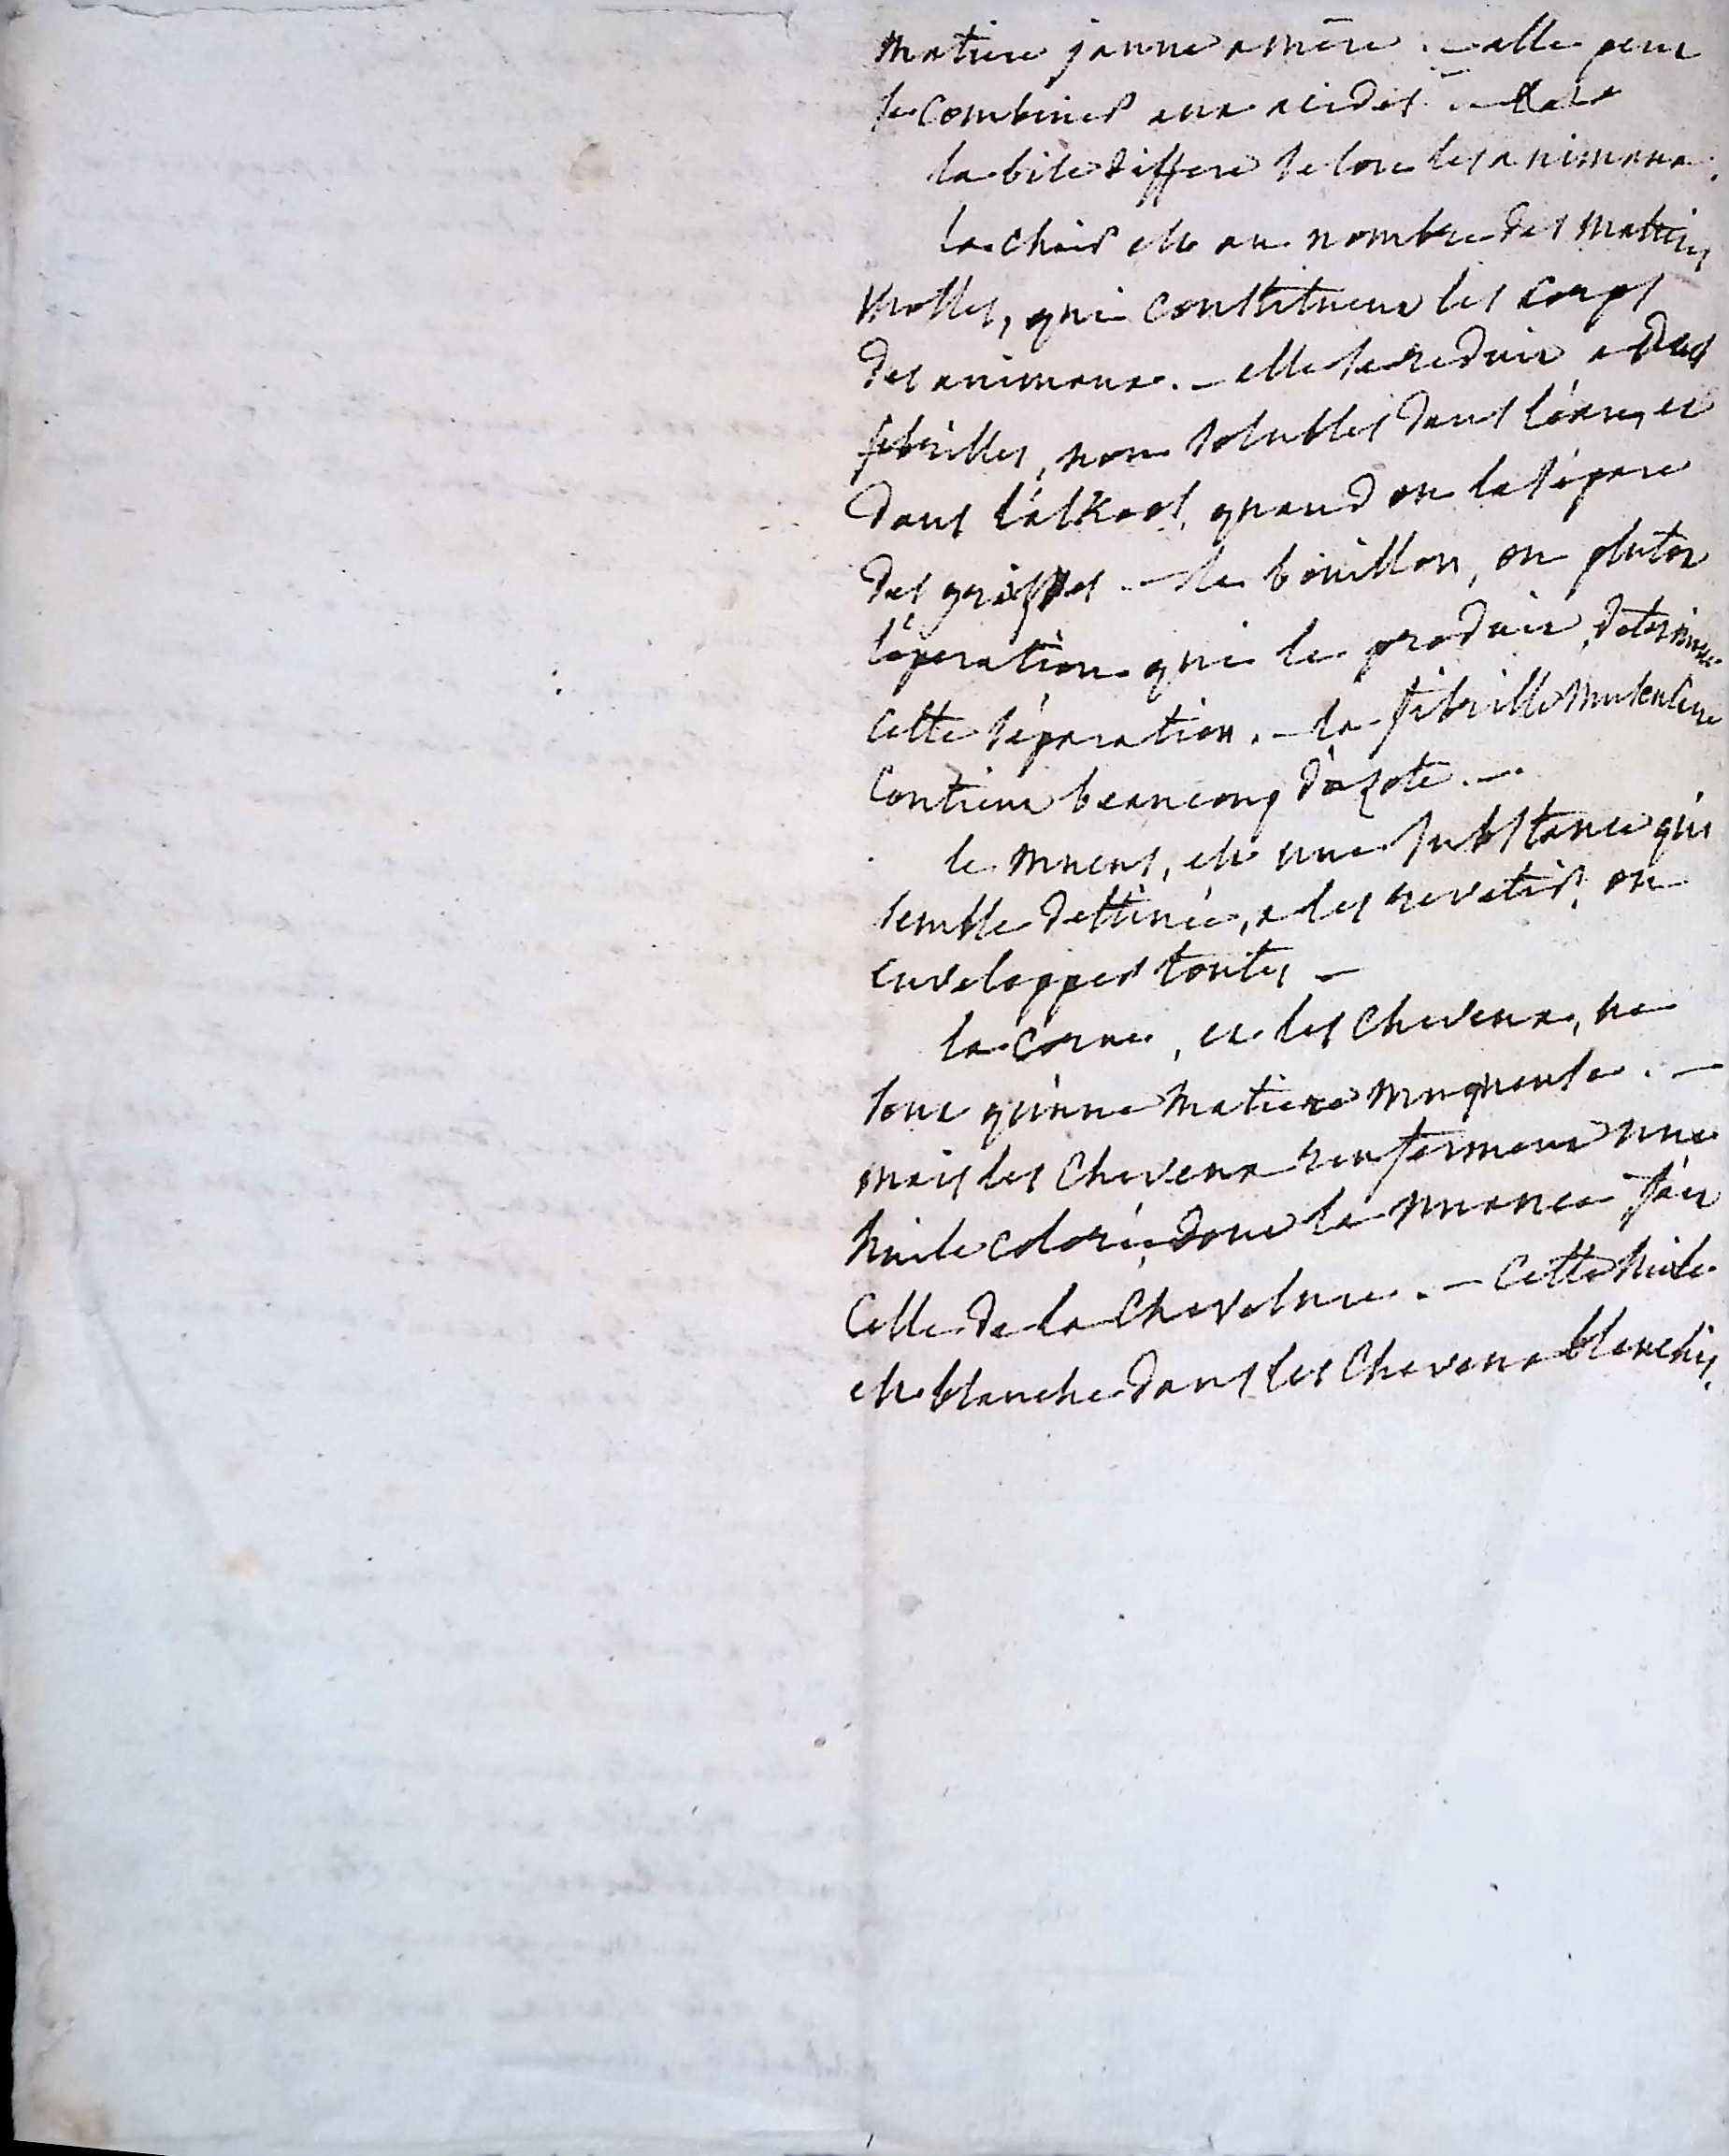 matiere jaune amère. — elle peut
se combiner aux acides. —
la bile differe selon les animaux.
la chair est au nombre des matieres
molles, qui constituent les corps
des animaux. — elle se reduit a des
fibrilles, non solubles dans l'eau, et
dans l'alkool, quand on la sépare
des graisses. — le bouillon, ou plutot
l'operation qui le produit, determine
cette séparation. — la fibrille musculaire
contient beaucoup d'azote. —
le mucus, est une substance qui
semble destinée, a les revetir, ou
envelopper toutes —
la corne, et les cheveux, ne
sont qu'une matiere muqueuse. —
mais les cheveux renferment une
huile colorée, dont la nuance fait
celle de la chevelure. — cette huile
est blanche dans les cheveux blanchis.